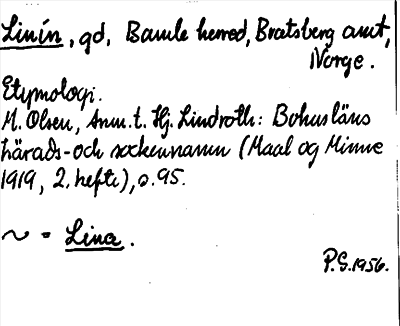 Linín, gd, Bamle herred, Bratsberg amt,
Norge.
Etymologi.
M. Olsen, Anm. t. Hj. Lindroth: Bohusläns
härads- och sockennamn (Maal og Minne
1919, 2. hefte), s. 95.
~ = Lina.
P.G. 1956.